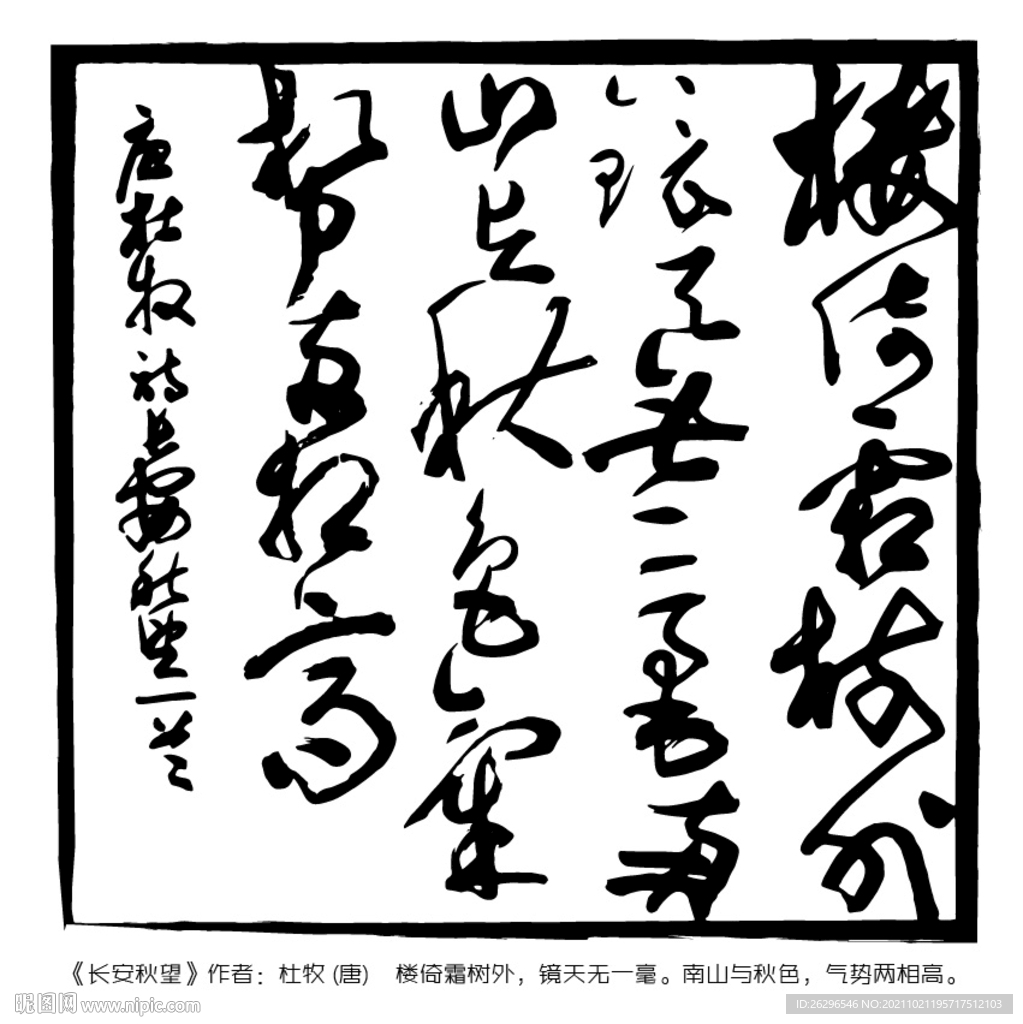 樓倚霜樹外
鏡天無一毫南
山与秋色氣
勢兩相高
唐杜牧詩長安秋望一首
《长安秋望》作者：杜牧(唐) 楼倚霜树外，镜天无一毫。南山与秋色，气势两相高。
昵图网 www.nipic.com
ID:26296546 NO:20211021195717512103